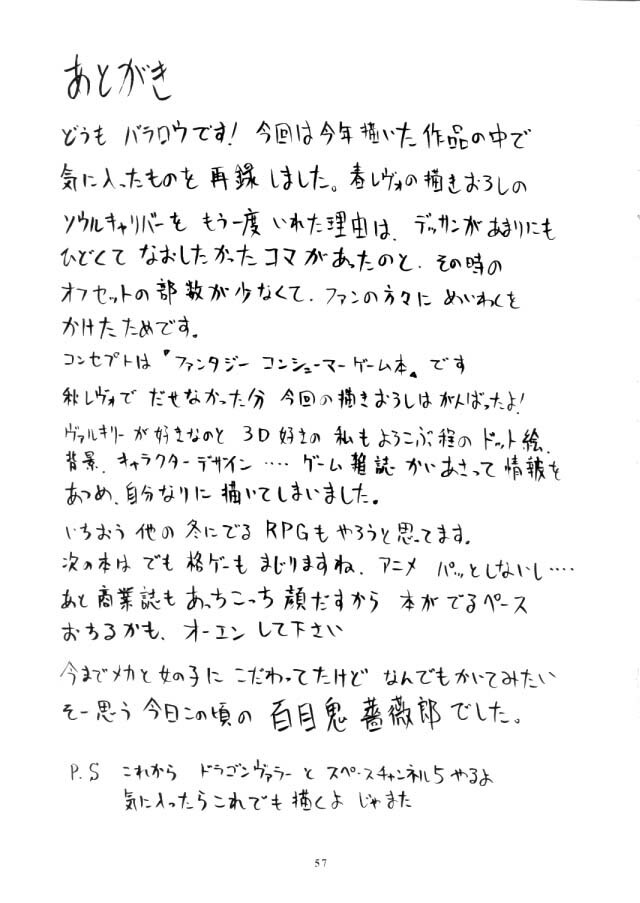 あとがき
どうも バラロウです! 今回は今年描いた作品の中で
気に入ったものを再録しました。春レヴォの描きおろしの
ソウルキャリバーを もう一度 いれた理由は、デッサンがあまりにも
ひどくて なおしたかったコマがあったのと、その時の
オフセットの部数が少なくて、ファンの方々に めいわくを
かけたためです。
コンセプトは『ファンタジー コンシューマーゲーム本』です
秋レヴォで だせなかった分 今回の描きおろしはがんばったよ!
ヴァルキリーが好きなのと 3D好きの 私もようこぶ程の ドット絵、
背景、キャラクターデザイン‥‥ ゲーム雑誌 かいあさって 情報を
あつめ、自分なりに 描いてしまいました。
いちおう 他の 冬にでる RPGも やろうと思ってます。
次の本は でも 格ゲーも まじりますね、アニメ パッとしないし‥‥
あと 商業誌も あっちこっち 顔だすから 本がでるペース
おちるかも、オーエンして下さい
今までメカと女の子に こだわってたけど なんでもかいてみたい
そー思う 今日この頃の 百目鬼 薔薇郎でした。
P.S これから ドラゴンヴァラーと スペースチャンネル5 やるよ
気に入ったらこれでも 描くよ じゃまた
57